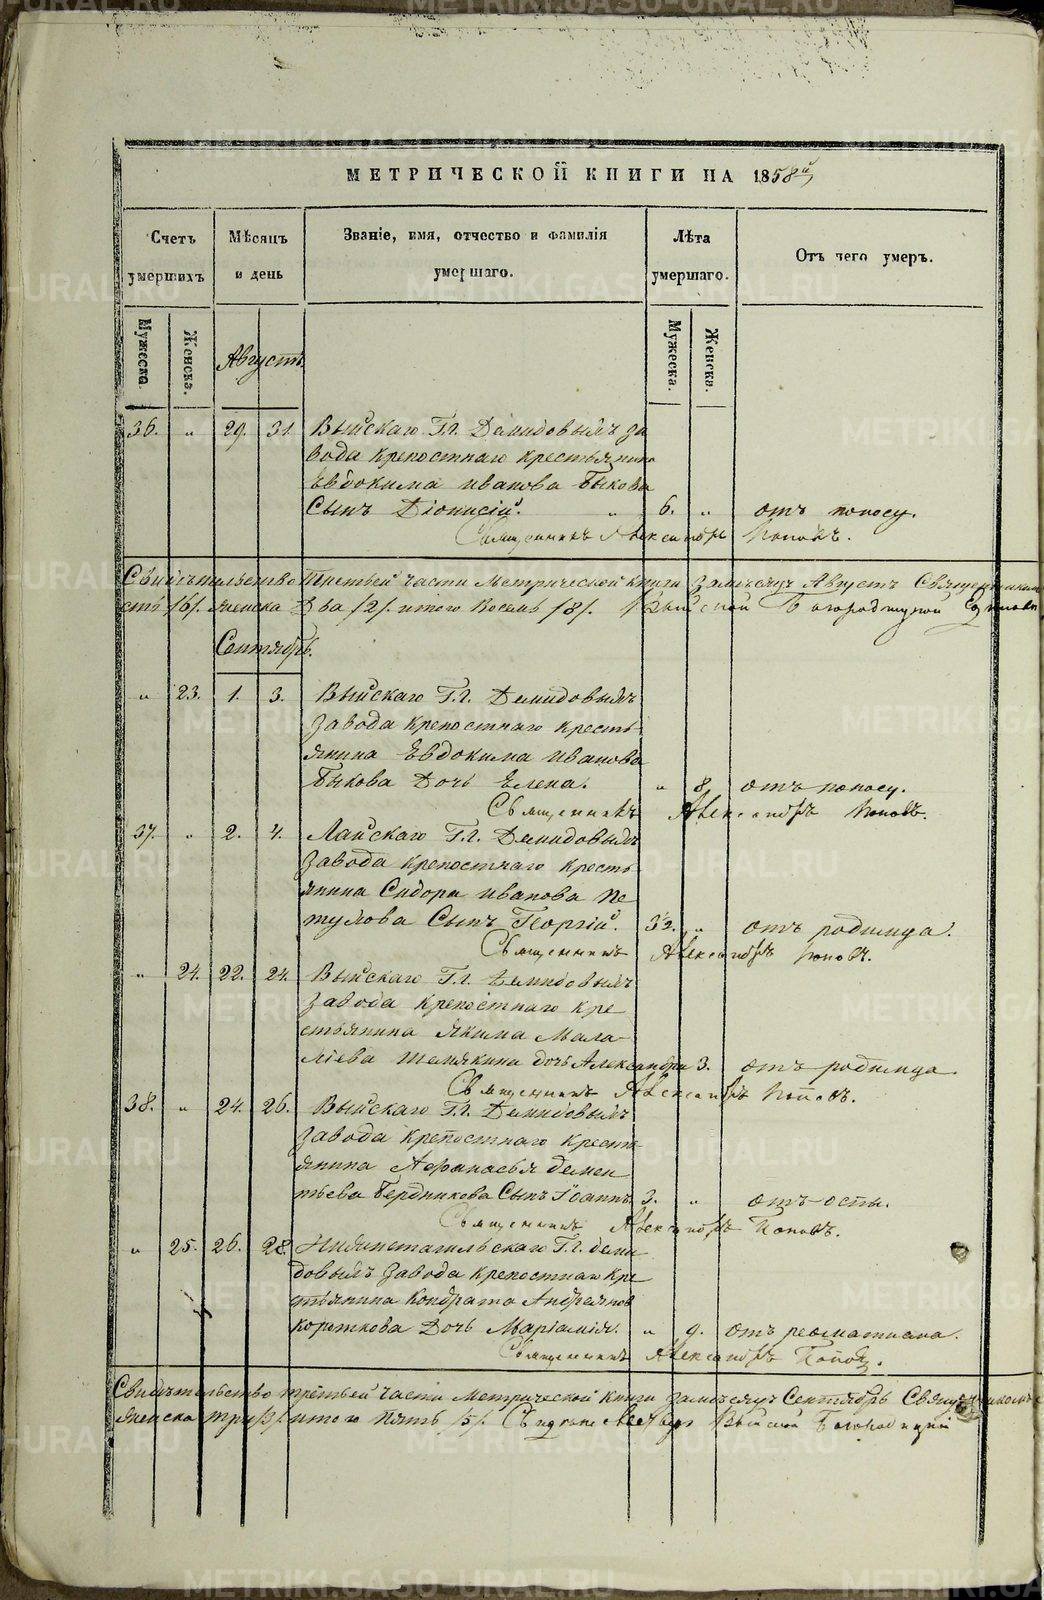 МЕТРИЧЕСКОЙ КНИГИ НА 1858й
Счетъ умершихъ
Мѣсяцъ и день
Званіе, имя, отчество и фамилія умершаго.
Лѣта умершаго.
Отъ чего умеръ.
Мужеска. Женска. Мужеска. Женска.
Августъ
36. „ 29. 31. Выйскаго Г.г. Демидовыхъ за
вода крепостнаго крестьянина
Евдокима Иванова Быкова
Сынъ Діонисій. „ 6. „ отъ поносу.
Священникъ Александръ Поповъ.
Свидѣтельство Третьей части Метрической книги за мѣсяцъ Августъ Священникомъ
стъ /6/. женска Два /2/. итого Восемь /8/. Выйской Богородицкой
Сентябрь.
„ 23. 1. 3. Выйскаго Г.г. Демидовыхъ
завода крепостнаго кресть
янина Евдокима Иванова
Быкова Дочь Елена. „ 8. отъ поносу.
Священникъ Александръ Поповъ.
37. „ 2. 4. Лайскаго Г.г. Демидовыхъ
завода крепостнаго кресть
янина Сидора Иванова Пе
тухова Сынъ Георгій. 3½. „ отъ родимца.
Священникъ Александръ Поповъ.
„ 24. 22. 24. Выйскаго Г.г. Демидовыхъ
завода крепостнаго кре
стьянина Якима Мала
хіева Шемякина дочь Александра 3. отъ родимца.
Священникъ Александръ Поповъ.
38. „ 24. 26. Выйскаго Г.г. Демидовыхъ
завода крепостнаго кресть
янина Афанасья Демен
тьева Бердникова Сынъ Іоаннъ 3. „ отъ оспы.
Священникъ Александръ Поповъ.
„ 25. 26. 28. Нижнетагильскаго Г.г. Деми
довыхъ завода крепостнаго кре
стьянина Кондрата Андреянов
Короткова Дочь Маріамія. „ 9. отъ ревматизма.
Священникъ Александръ Поповъ.
Свидѣтельство третьей части Метрической книги за мѣсяцъ Сентябрь Священникомъ
женска три /3/. итого пять /5/. Выйской Богородицкой
METRIKI.GASO-URAL.RU